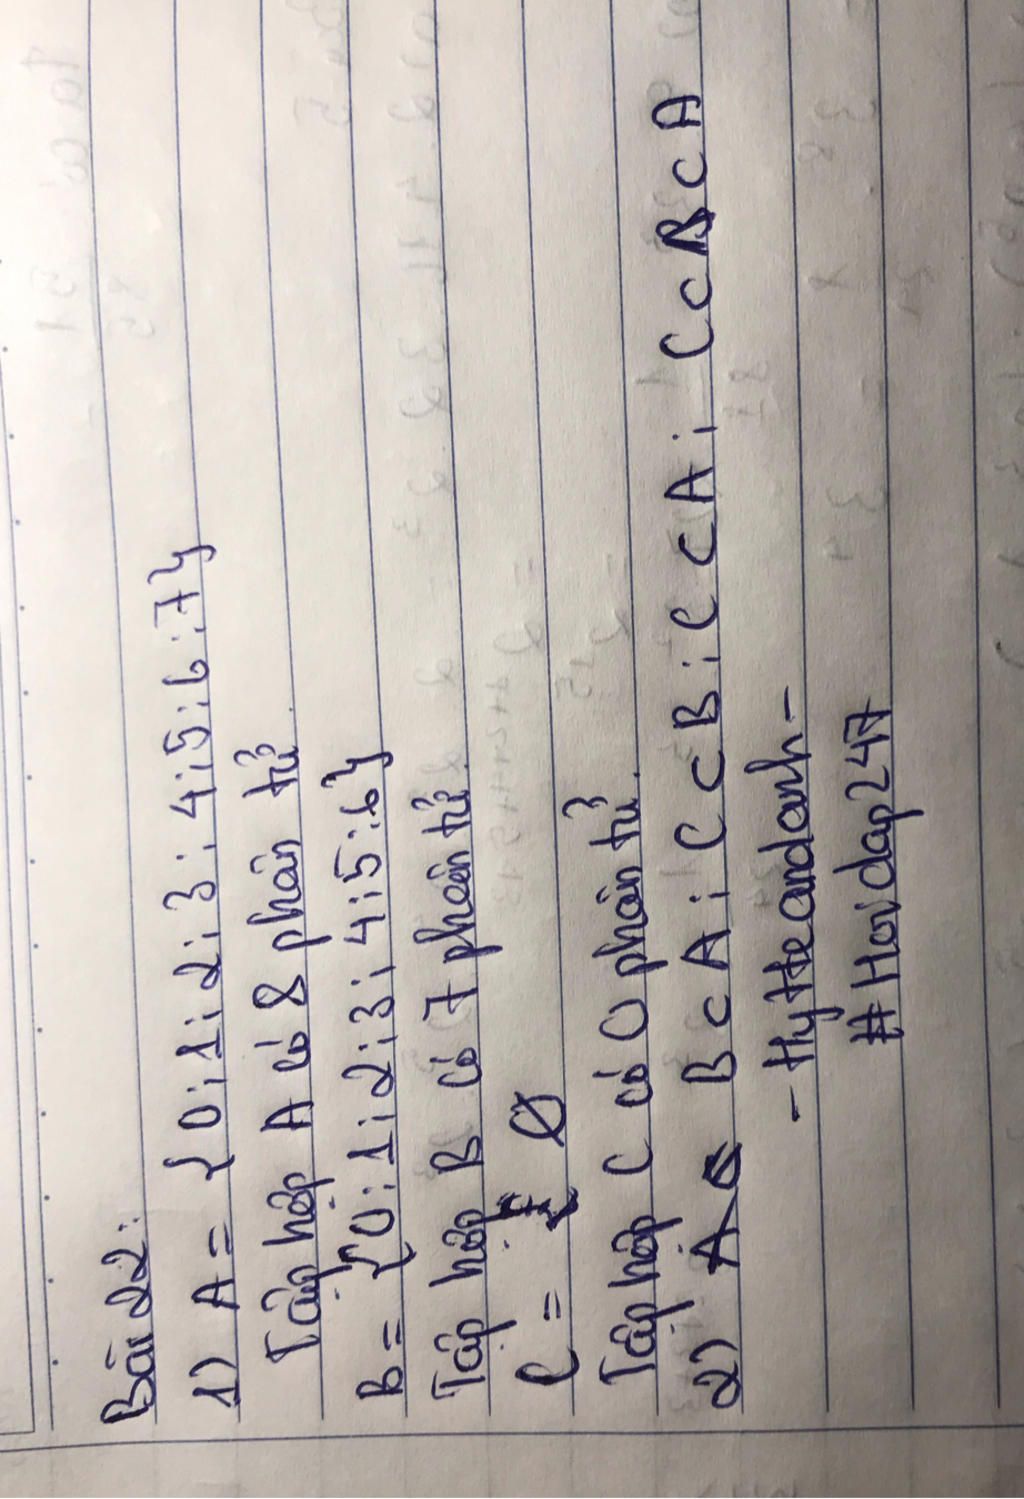 Bài 22:
1) A = { 0 ; 1 ; 2 ; 3 ; 4 ; 5 ; 6 ; 7 }
Tập hợp A có 8 phần tử.
B = { 0 ; 1 ; 2 ; 3 ; 4 ; 5 ; 6 }
Tập hợp B có 7 phần tử.
C = Ø
Tập hợp C có 0 phần tử.
2) B ⊂ A ; C ⊂ B ; C ⊂ A ; C ⊂ B ⊂ A
#Hoidap247